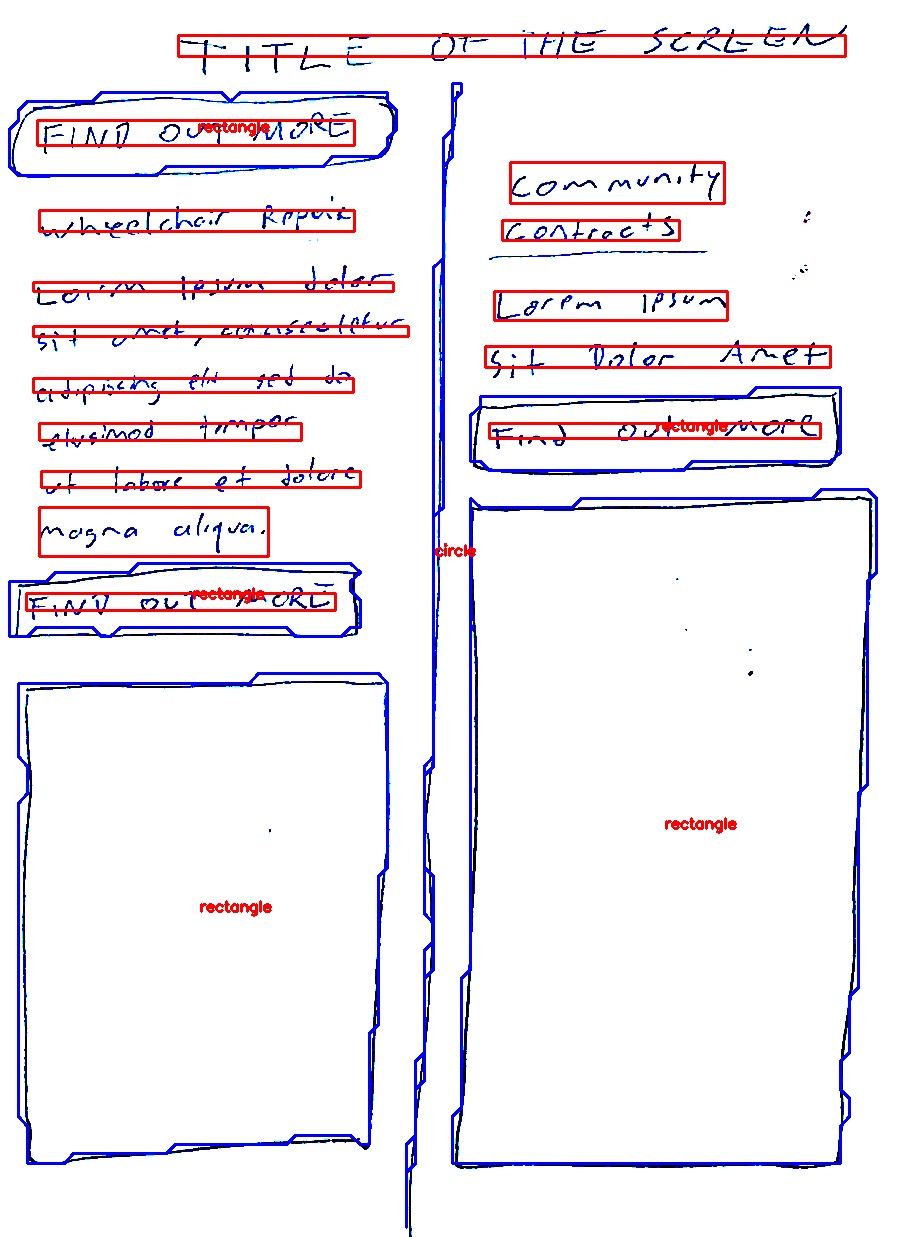 TITLE OF THE SCREEN
FIND OUT MORE
rectangle
wheelchair Repair
Lorem Ipsum dolor
sit amet, consectetur
adipiscing elit sed do
elusimod tempor
ut labore et dolore
magna aliqua.
FIND OUT MORE
rectangle
rectangle
circle
Community
Contracts
Lorem Ipsum
Sit Dolor Amet
Find out more
rectangle
rectangle